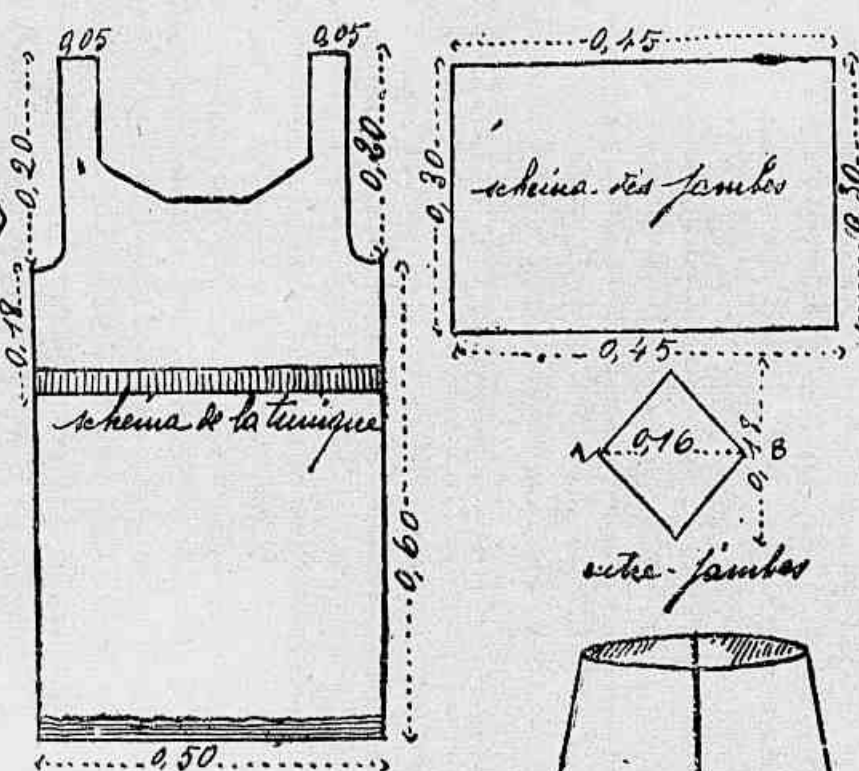 0,05
0,05
0,20
0,20
0,18
schema de la tunique
0,60
0,50
0,45
0,30
schema des jambes
0,30
0,45
A
0,16
B
0,18
entre-jambes